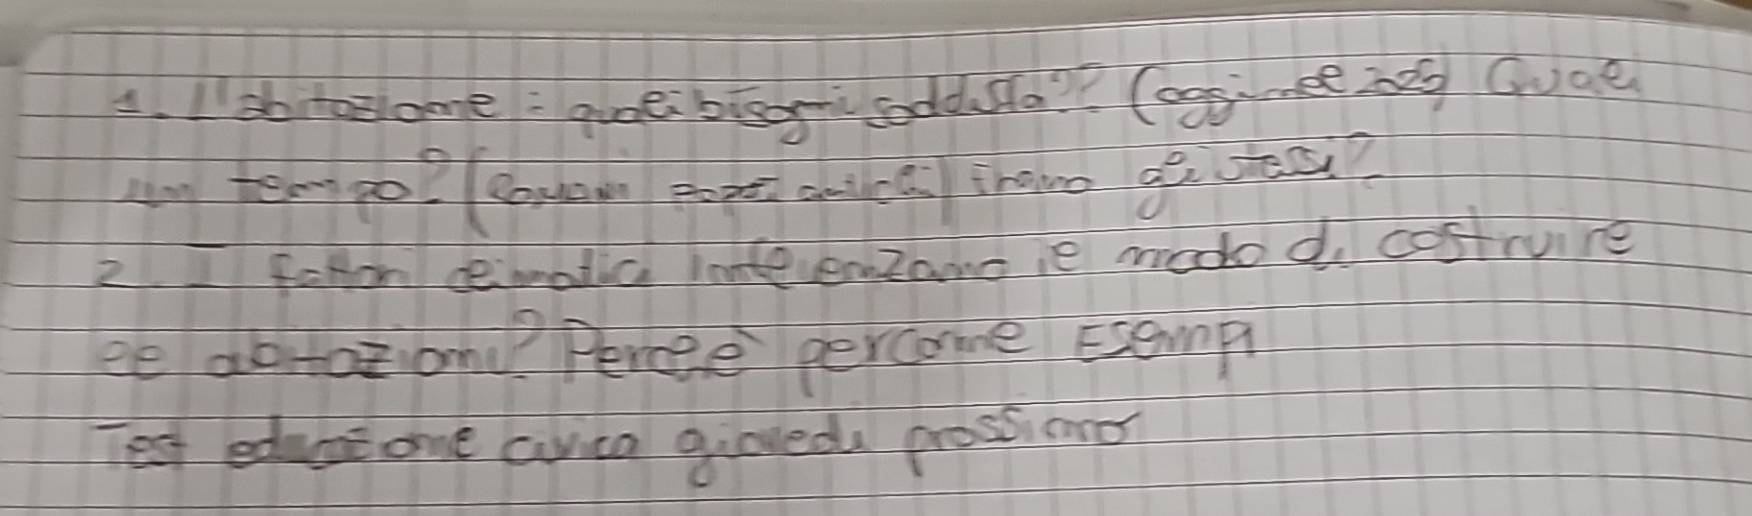 1. L'abitazione: quali bisogni soddisfa? (oggi nel 2025) Quale
un tempo? ( popoli antichi) erano gli stessi?
2 I fattori climatici influenzano il modo di costruire
le abitazioni? Perché percome Esempi
Test educazione civica giovedì prossimo